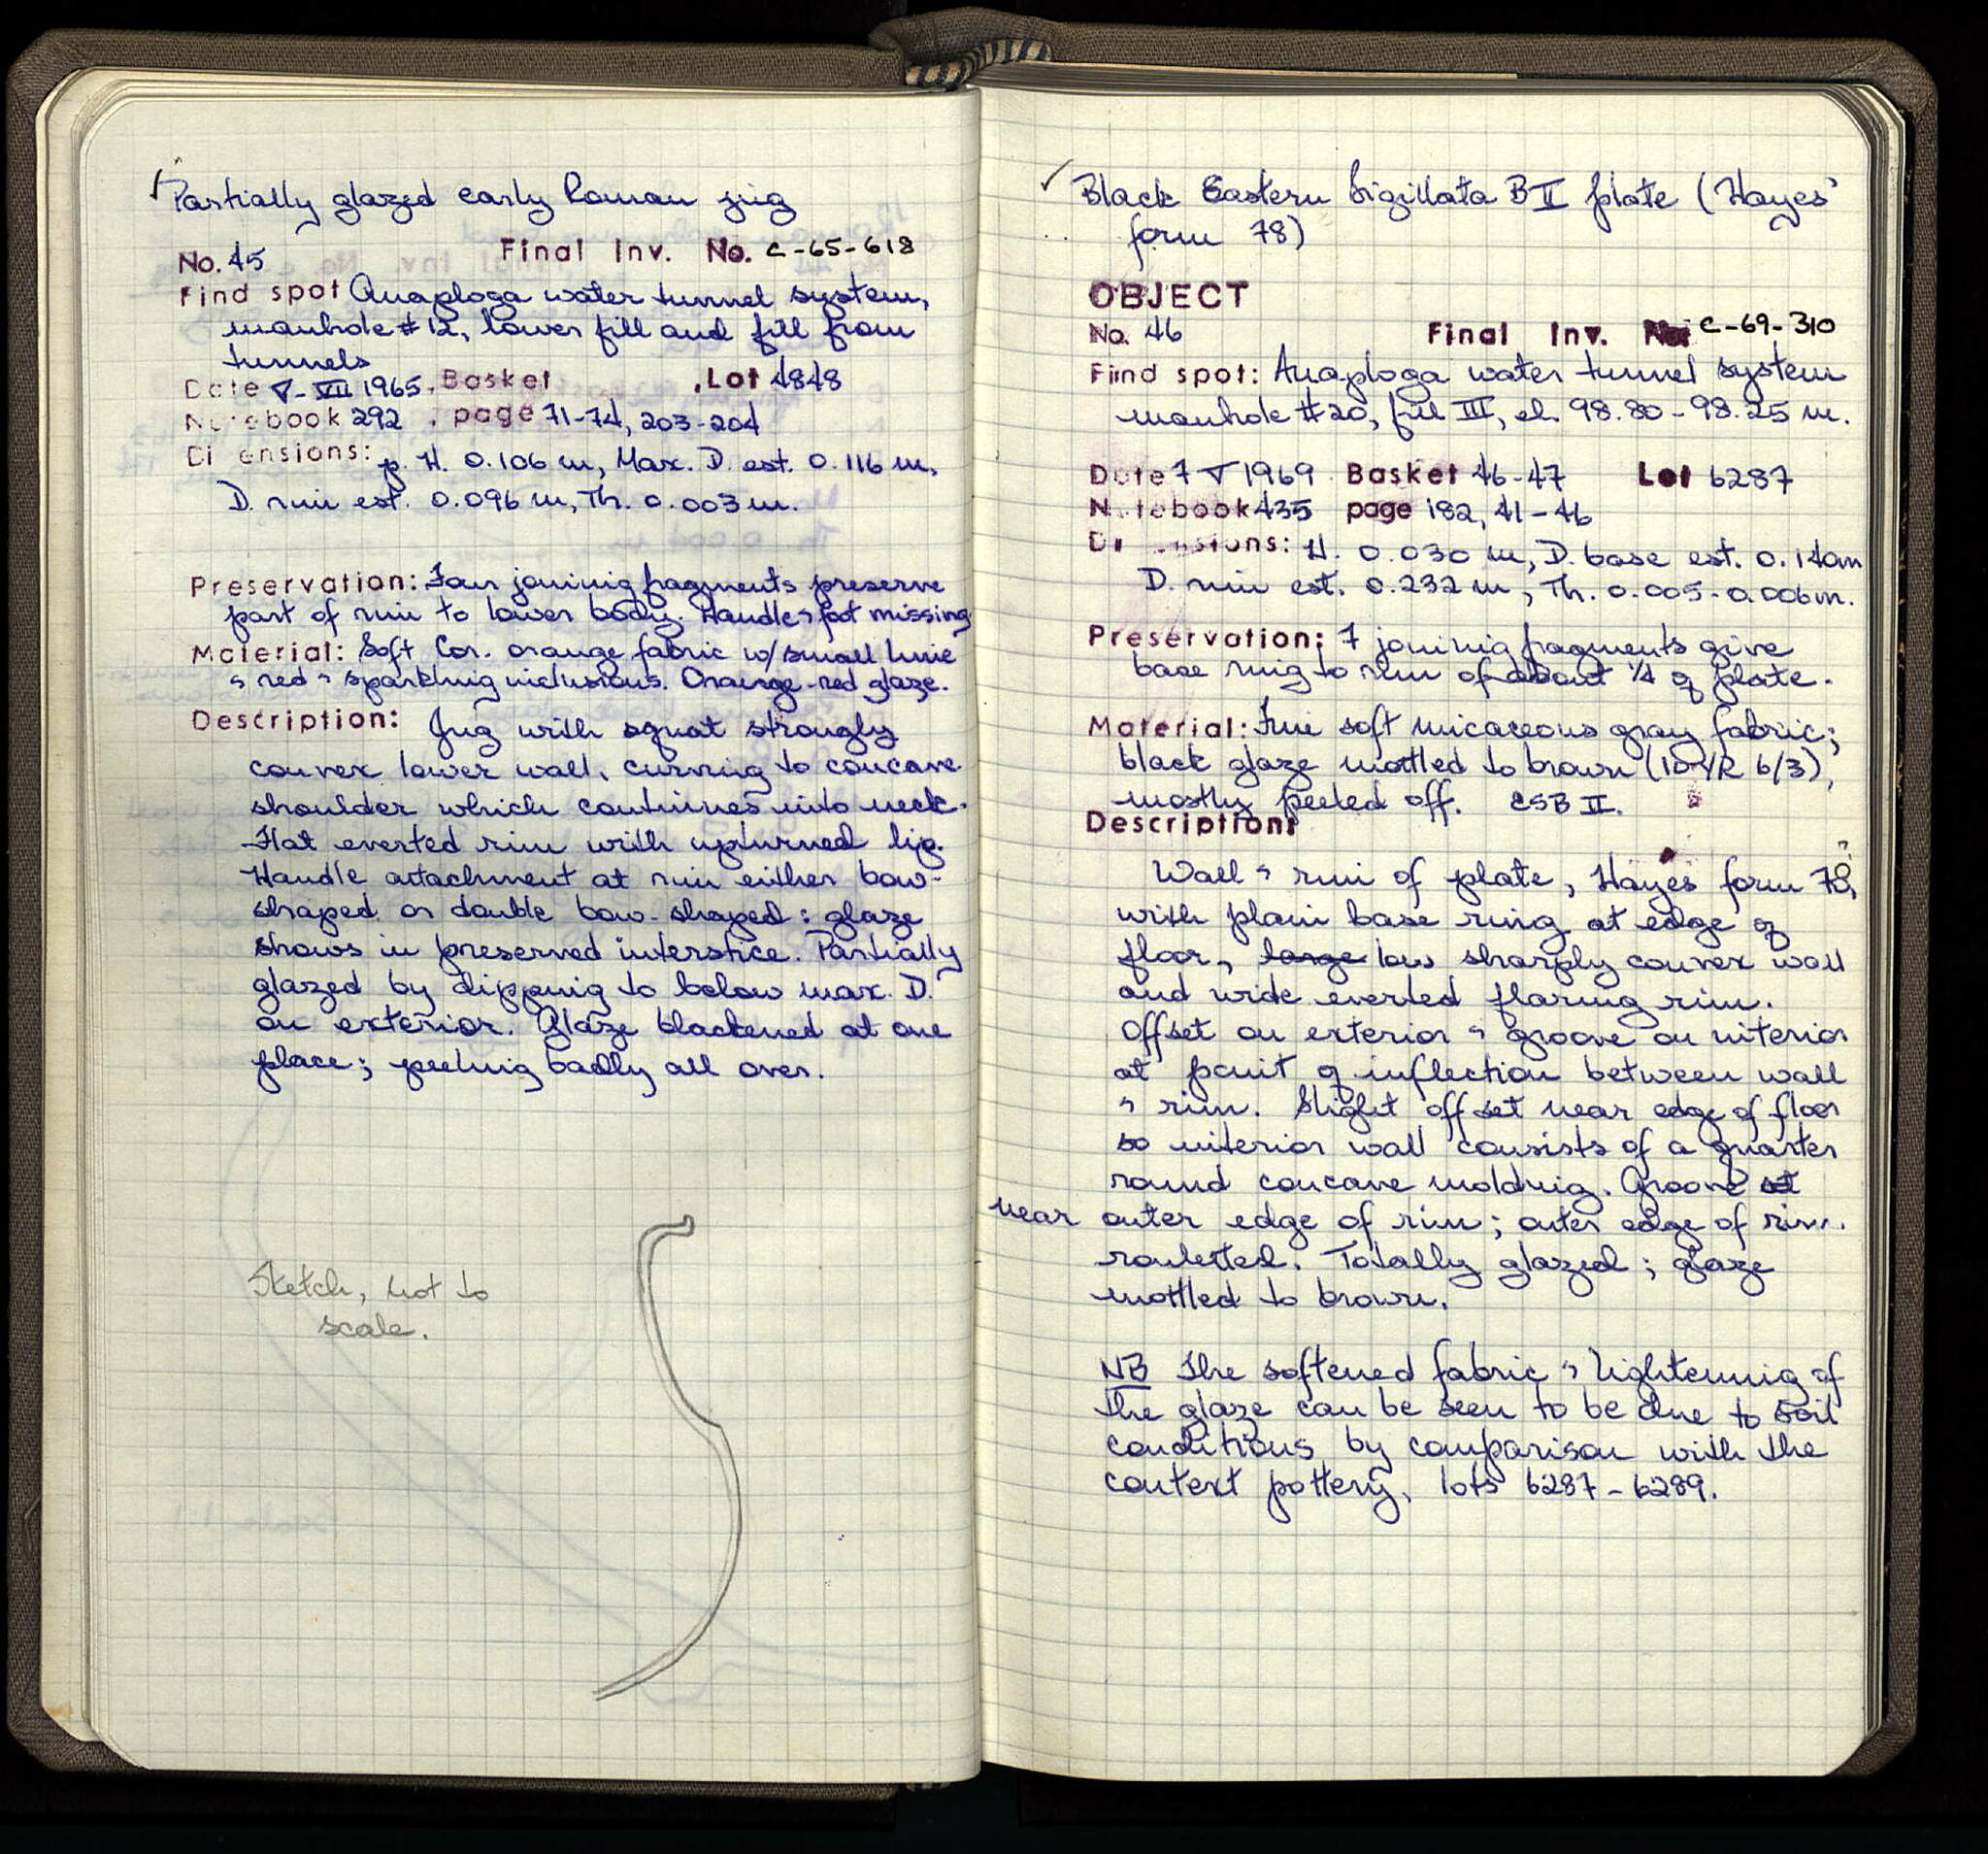 ✓ Partially glazed early Roman jug
No. 45 Final Inv. No. C-65-618
Find spot Anaploga water tunnel system,
manhole #12, lower fill and fill from
tunnels
Date V-VII 1965. Basket , Lot 4848
Notebook 292 , page 71-74, 203-204
Di ensions: p. H. 0.106 m, Max. D. est. 0.116 m,
D. rim est. 0.096 m, Th. 0.003 m.
Preservation: Four joining fragments preserve
part of rim to lower body. Handle & foot missing
Material: Soft Cor. orange fabric w/ small lime
& red & sparkling inclusions. Orange-red glaze.
Description: Jug with squat strongly
convex lower wall, curving to concave
shoulder which continues into neck.
Flat everted rim with upturned lip.
Handle attachment at rim either bow-
shaped or double bow-shaped: glaze
shows in preserved interstice. Partially
glazed by dipping to below max. D.
on exterior. Glaze blackened at one
place; peeling badly all over.
Sketch, not to
scale.
✓ Black Eastern Sigillata B II plate (Hayes'
form 78)
OBJECT
No. 46 Final Inv. No: C-69-310
Find spot: Anaploga water tunnel system
manhole #20, fill III, el. 98.80-98.25 m.
Date 7 V 1969 Basket 46-47 Lot 6287
Notebook 435 page 182, 41-46
Di nsions: H. 0.030 m, D. base est. 0.140m
D. rim est. 0.232 m, Th. 0.005-0.006m.
Preservation: 7 joining fragments give
base ring to rim of about 1/4 of plate.
Material: Fine soft micaceous gray fabric;
black glaze mottled to brown (10YR 6/3),
mostly peeled off. ESB II.
Description:
Wall & rim of plate, Hayes form 78,
with plain base ring at edge of
floor, large low sharply convex wall
and wide everted flaring rim.
Offset on exterior & groove on interior
at point of inflection between wall
& rim. Slight offset near edge of floor
so interior wall consists of a quarter
round concave molding. Groove at
near outer edge of rim; outer edge of rim
rouletted. Totally glazed; glaze
mottled to brown.
NB The softened fabric & lightening of
the glaze can be seen to be due to soil
conditions by comparison with the
context pottery, lots 6287-6289.